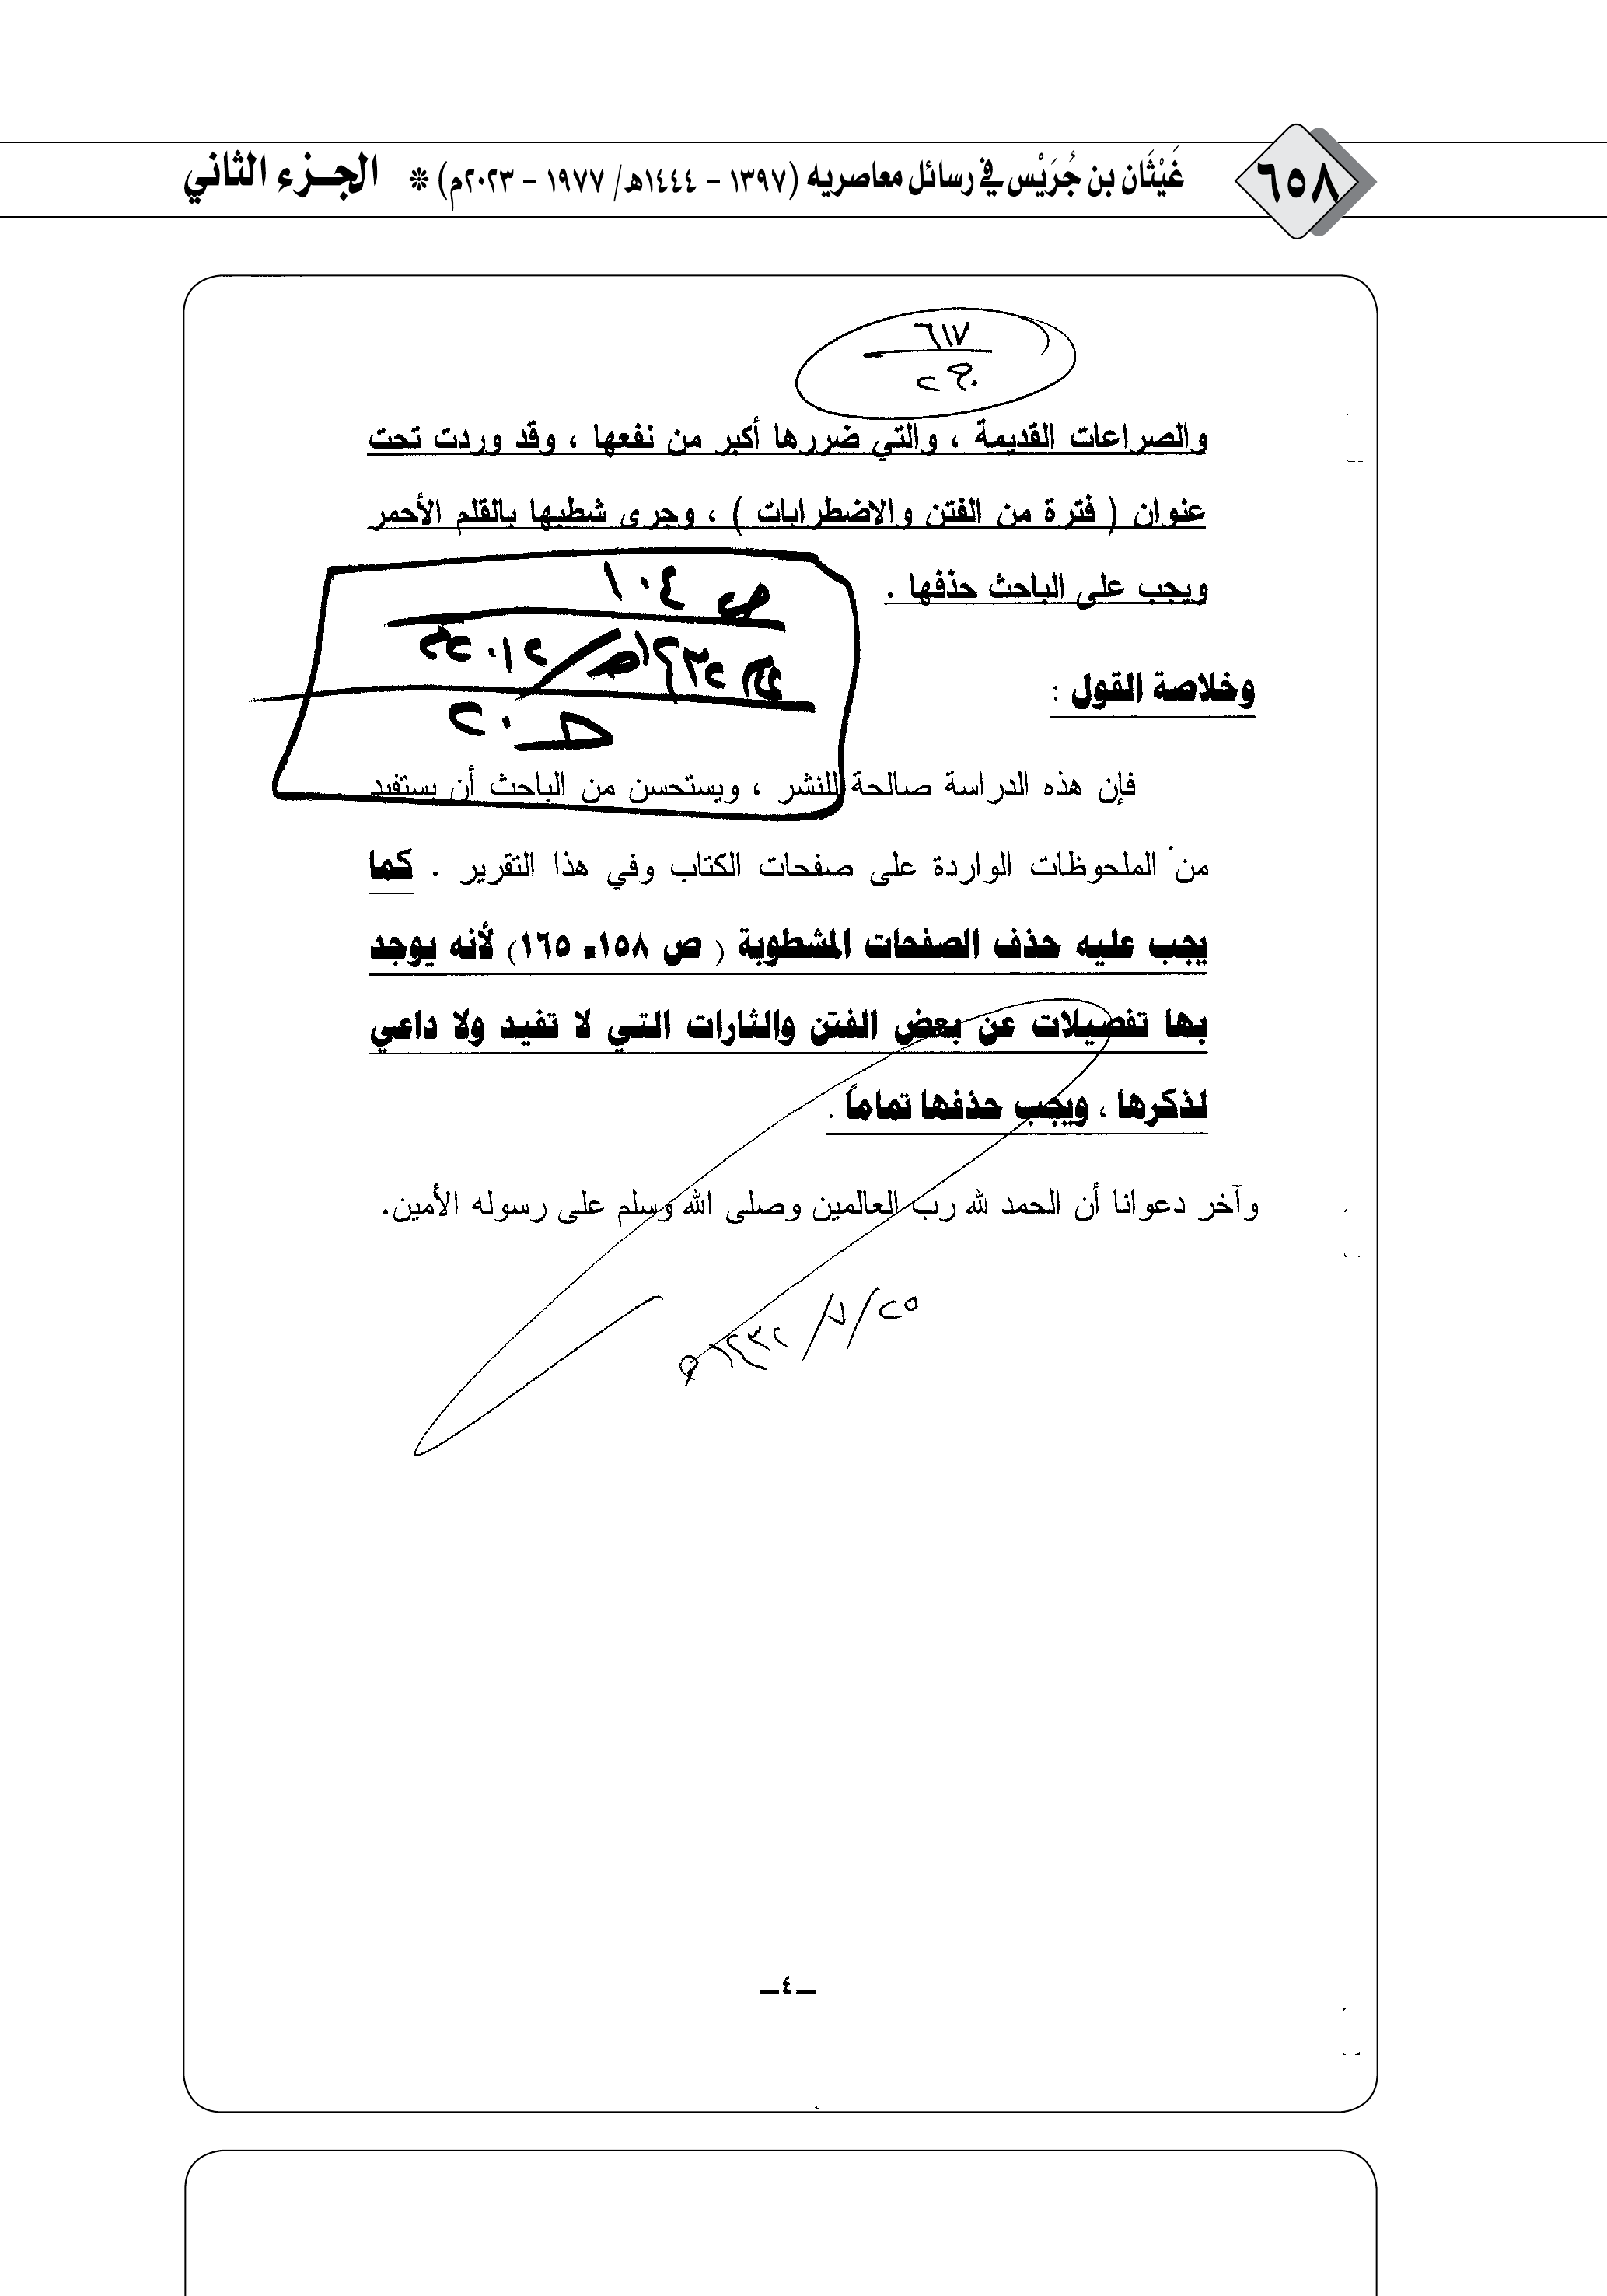 ٦٥٨
غَيْثَان بن جُرَيْس في رسائل معاصريه (١٣٩٧ - ١٤٤٤هـ/ ١٩٧٧ - ٢٠٢٣م) * الجـزء الثاني
٦١٧
والصراعات القديمة ، والتي ضررها أكبر من نفعها ، وقد وردت تحت
عنوان ( فترة من الفتن والاضطرابات ) ، وجرى شطبها بالقلم الأحمر
ويجب على الباحث حذفها .
ص ٤٠١
وخلاصة القول :
فإن هذه الدراسة صالحة للنشر ، ويستحسن من الباحث أن يستفيد
من الملحوظات الواردة على صفحات الكتاب وفي هذا التقرير . كما
يجب عليه حذف الصفحات المشطوبة ( ص ١٥٨ـ ١٦٥) لأنه يوجد
بها تفصيلات عن بعض الفتن والثارات التي لا تفيد ولا داعي
لذكرها ، ويجب حذفها تماماً .
وآخر دعوانا أن الحمد لله رب العالمين وصلى الله وسلم على رسوله الأمين.
٢٥/٧/١٤٣٢هـ
ـ٤ـ